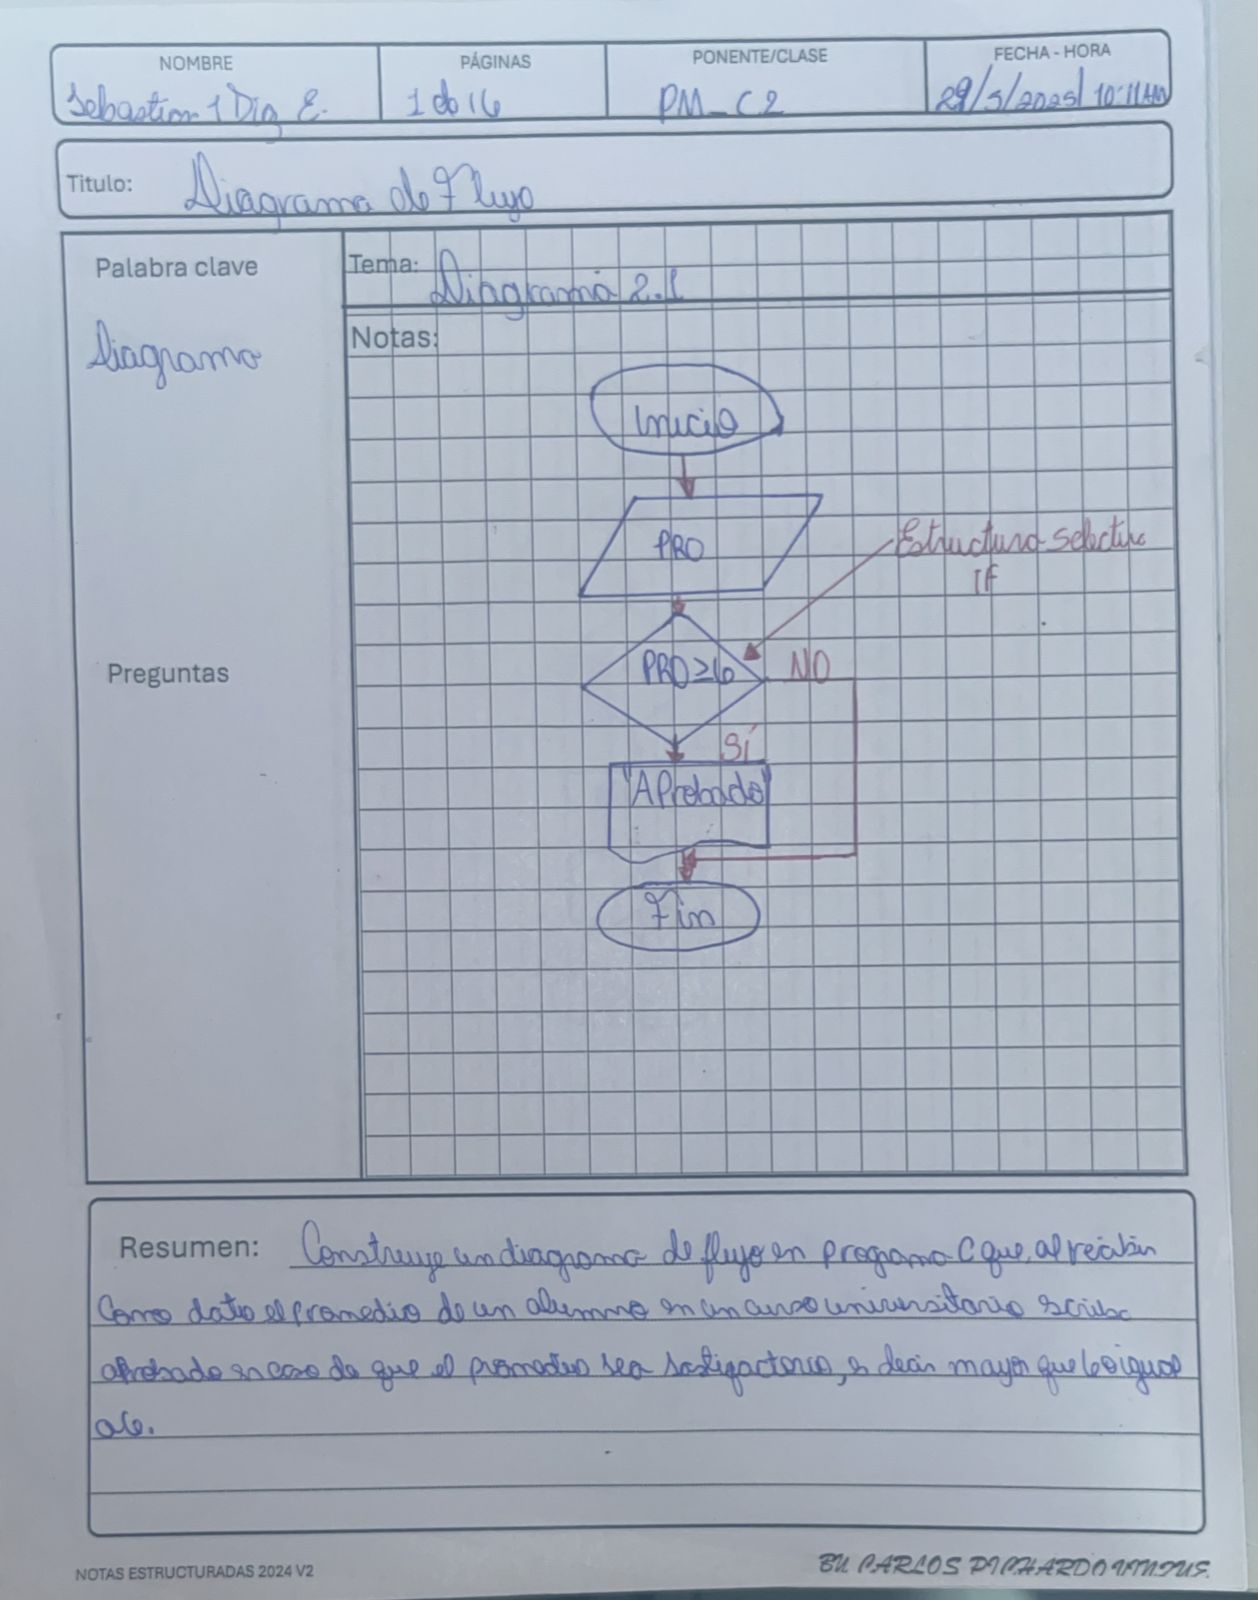 NOMBRE PÁGINAS PONENTE/CLASE FECHA - HORA
Sebastian 1 E. 1 de 16 PM_C2 29/5/2025/ 10:11AM
Titulo: Diagrama de Flujo
Palabra clave
Diagrama
Tema: Diagrama 2.1
Notas:
Inicio
PRO
Estructura selectiva
IF
PRO≥6 NO
Preguntas
SÍ
"Aprobado"
Fin
Resumen: Construye un diagrama de flujo en programa C que, al recibir
como dato el promedio de un alumno en un curso universitario escriba
aprobado en caso de que el promedio sea es decir mayor que 6 o igual
a 6.
NOTAS ESTRUCTURADAS 2024 V2
BU CARLOS PICHARDO